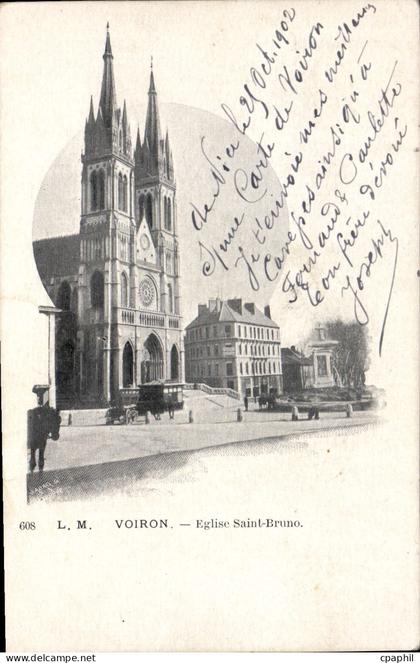 de Nice le 25 Oct. 1902
1 une Carte de Voiron
Je t'envoie mes meilleures
Caresses ainsi qu'à
Fernand & Paulette
Ton frère dévoué
Joseph
608 L. M. VOIRON. — Eglise Saint-Bruno.
www.cpaphil.com